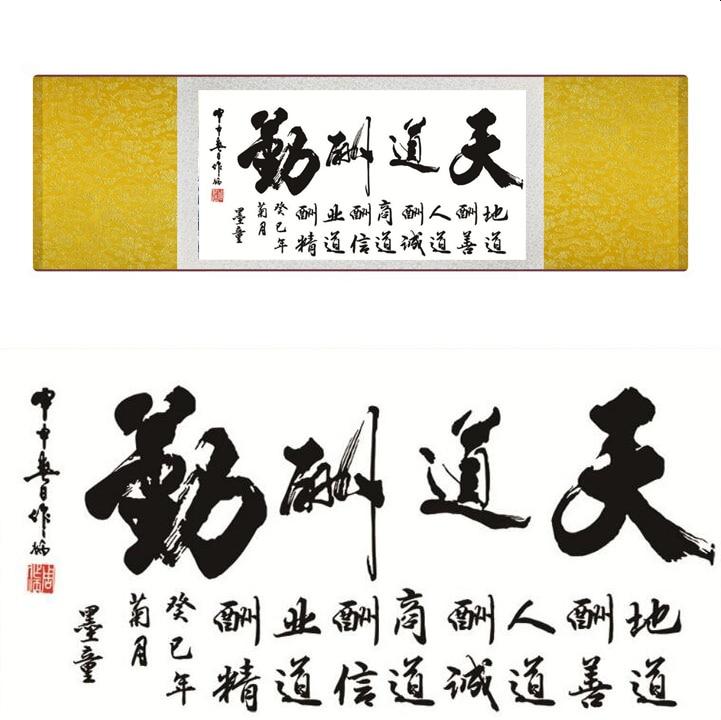 天道酬勤
地道
酬善
人道
酬诚
商道
酬信
业道
酬精
癸巳年
菊月
墨童
甲申
日作
天道酬勤
地道
酬善
人道
酬诚
商道
酬信
业道
酬精
癸巳年
菊月
墨童
甲申
日作